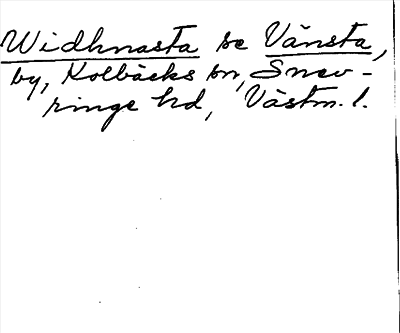 Widhnasta se Vänsta,
by, Kolbäcks sn, Snev-
ringe hd, Västm. l.